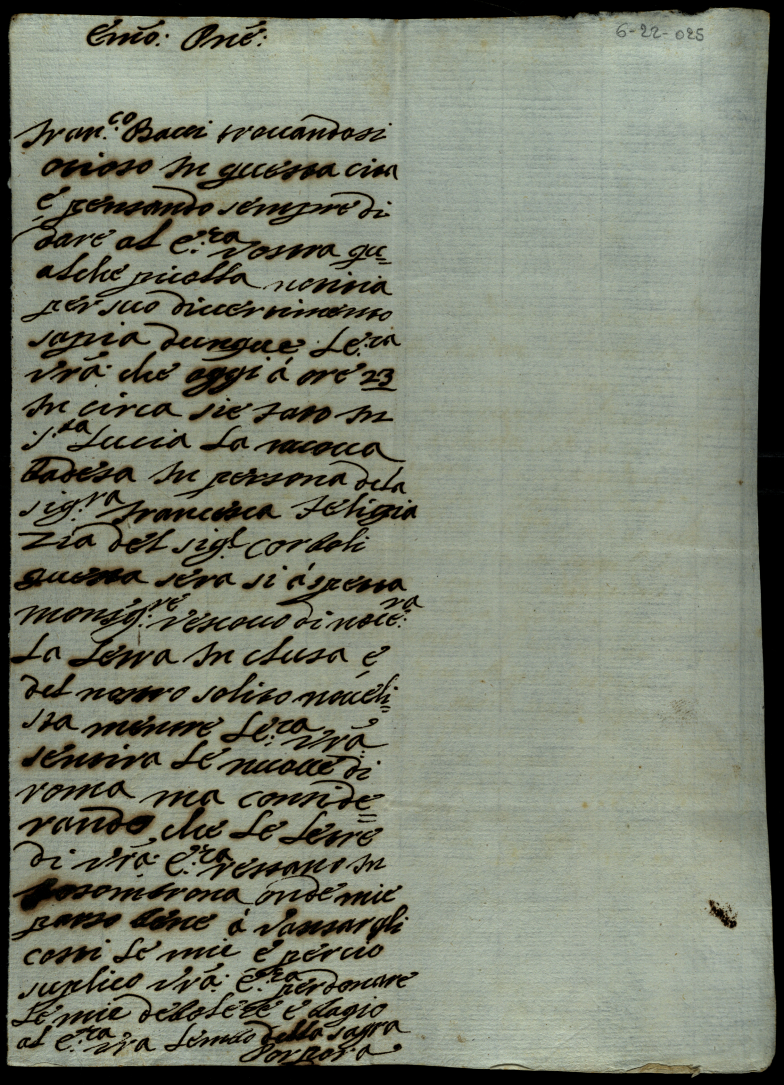 6-22-025
Emo: Pne:
Fran:co Bacci trovandosi
otioso in questa cita
è pensando sempre di
dare al E:za Vostra qu=
alche picolla notitia
per suo divertimento
sapia dunque L'E:za
vrã che oggi á ore 23
in circa si è fato in
S:ta Lucia La nuova
badesa in persona dela
sig:ra Francesca
Zia del sig:r Cordoli
questa sera si áspetta
monsig:re vescovo di noce:ra
La Letra in clusa é
del nostro solito noveli=
sta mentre L'E:za vrã
sentira Le nuove di
roma ma conside=
rando che Le Letre
di vrã: E:za restano in
fosombrona onde mi é
parso bene á vansar gli
cossi Le mie e perciò
suplico vrã: E:za perdonare
Le mie debolezze e bagio
al E:za vra Lembo della sagra
Porpora